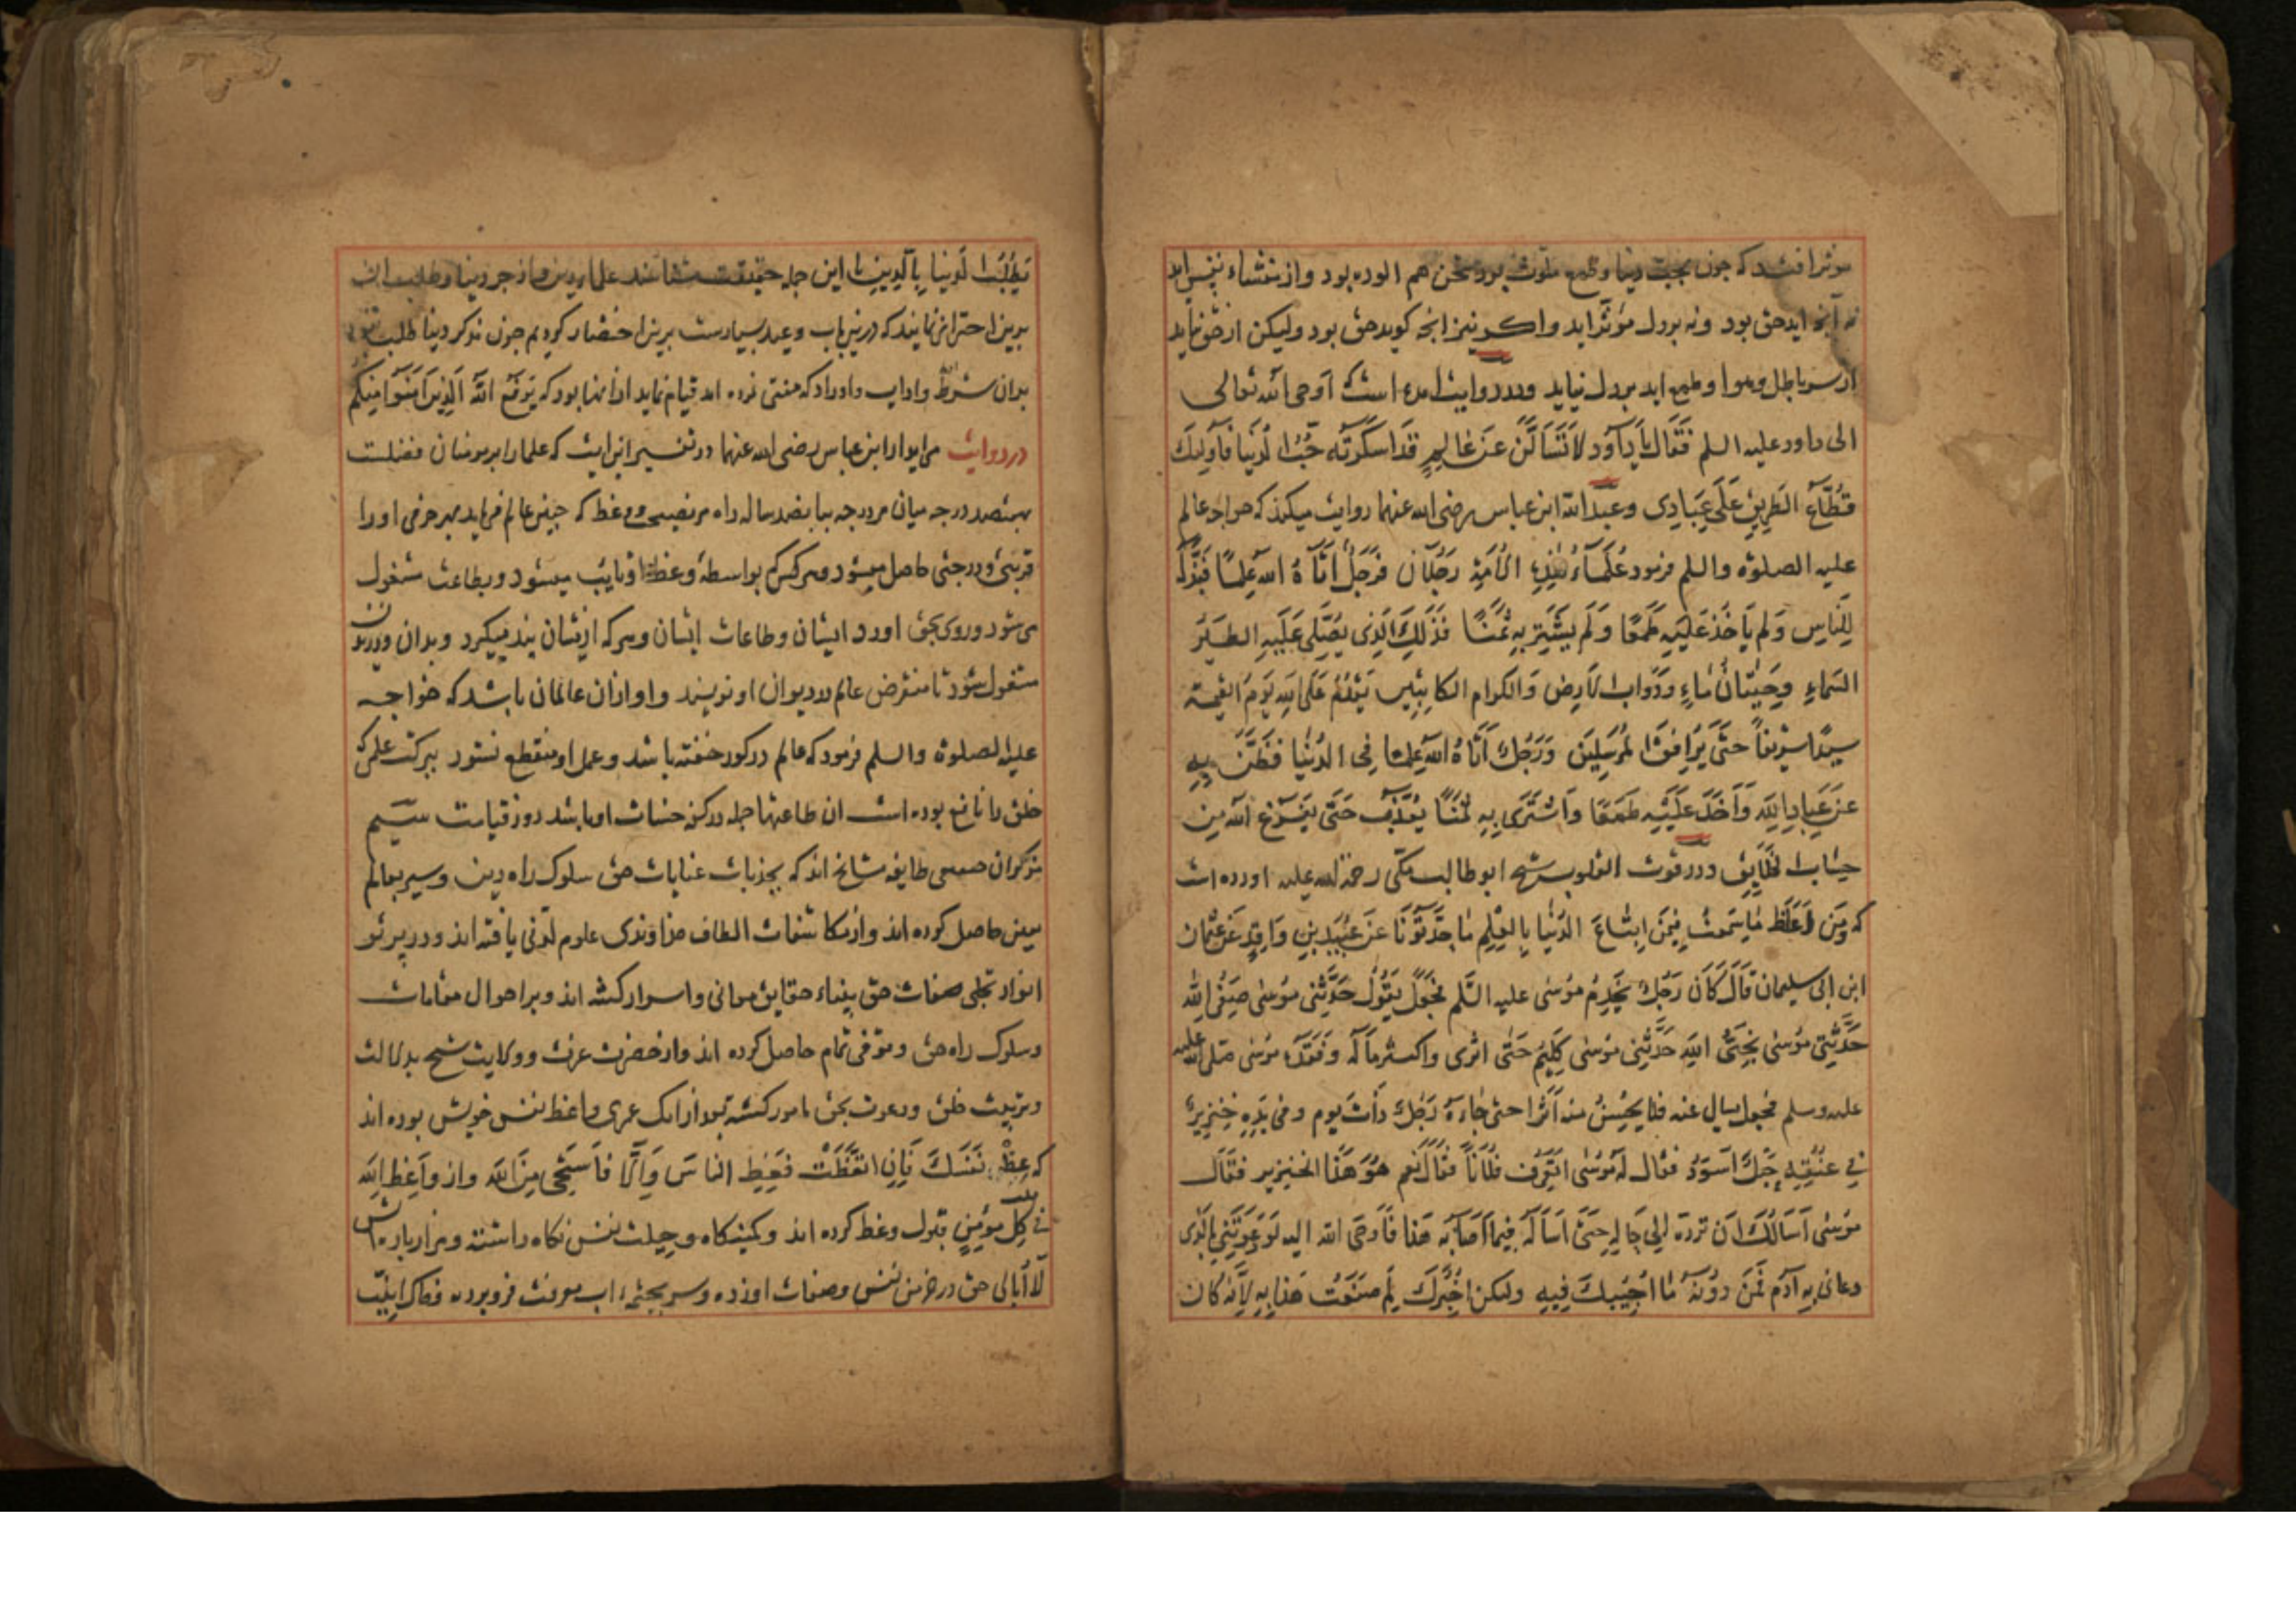 موثر افتد که چون بمحبت دنیا و طمع ملوث بود سخن هم الوده بود و از منشاء نفس اید
نه آنچه اید حق بود و نه بر دل مؤثر اید و اکر نیز انچه کوید حق بود ولیکن از حق نیاید
از سر باطل و هوا و طمع اید بر دل نیاید ودر روایت امده است که اوحی الله تعالی
الی داود علیه السلم فَقَالَ یَا دَاوُد لَا تَسْأَلَنَّ عَنْ عَالِمٍ قَدْ اَسْکَرَتْهُ حُبُّ الدُّنیَا فَاُولٰئِکَ
قُطَّاعُ الطَرِیْقِ عَلَی عِبَادِی و عبدالله ابن عباس رضی الله عنهما روایت میکند که خواجه عالم
علیه الصلوة والسلم فرمود عُلَمَاءُ هٰذِهِ الْاُمَّةِ رَجُلَانِ فَرَجُلٌ اٰتَاهُ الله عِلْمًا فَبَذَلَهُ
لِلنَّاسِ وَلَمْ یَأخُذْ عَلَیْهِ طَمَعًا وَلَمْ یَشْتَرِ بِهِ ثَمَنًا فَذٰلِکَ الَّذِی یُصَلِّی عَلَیْهِ الطَّیْرُ
السَّمَاءِ وَحِیتَانُ المَاءِ وَدَوَابُّ الْاَرضِ وَالکرام الکَاتِبِینَ یَقْدَمُ عَلَی اللهِ یَومَ القِیٰمة
سَیِّدًا شَرِیفًا حَتّٰی یُرَافِقَ المُرْسَلِینَ وَرَجُلٌ اٰتَاهُ اللهُ عِلْمًا فِی الدُّنْیَا فَضَنَّ بِهِ
عَنْ عِبَادِ اللهِ وَاَخَذَ عَلَیْهِ طَمَعًا وَاشْتَرَی بِهِ ثَمَنًا یُعَذَّبُ حَتّٰی یَفْرُغَ الله مِن
حِسَابِ الخَلَایِقِ ودر قوت القلوب شیخ ابو طالب مکّی رحمة الله علیه اورده است
که وَمِنْ اَغْلَظِ مَا سَمِعْتُ فِیْمَنْ ابتَاعَ الدُّنْیَا بِالعِلْمِ مَا حَدَّثُونَا عَنْ عُبَیْدِ بْنِ وَاقِدٍ عَنْ عُثمان
ابن ابی سلیمان قَالَ کَانَ رَجُلٌ یَخْدِمُ مُوسٰی علیه السّلم فَجَعَلَ یَقُولُ حَدَّثَنِی مُوسٰی صَفِیُّ اللهِ
حَدَّثَنِی مُوسٰی نَجِیُّ اللهِ حَدَّثَنِی مُوسٰی کَلِیمُ حَتّٰی اثری واکثر مَالُه وَفَقَدَهُ مُوسٰی صَلی الله علیه
علیه وسلم فجعل یسال عنه فلا یُحِسُّ منه اَثَرًا حتی جَاءَهُ رَجُلٌ ذَاتَ یوم وفی یَدِهِ خِنْزِیرٌ
فِی عُنُقِهِ حَبْلٌ اَسْوَدُ فقال لَهُ مُوسٰی اتَعْرِفُ فُلَانًا فقَالَ نَعم هُوَ هٰذَا الخنزیر فقَالَ
مُوسٰی اَسَألُکَ اَن تردّه اِلٰی حَالِهِ حَتّٰی اَسْاَلَهُ فِیمَا اَصَابَهُ هٰذَا فَاَوحَی الله الیه لَوْ دَعَوْتَنِی بِالَّذِی
دعانی به آدم فَمَنْ دُونَهُ مَا اُجِیْبُکَ فِیهِ ولکن اُخْبِرُکَ لِمَ صَنَعْتُ هٰذَا بِهِ لِاَنَّهُ کان
یَطْلُبُ الدُّنیَا بِالدِّینِ این جمله حقیقت شناسند علماء دین و از حب دنیا و طلب ان
برین احتراز نمایند که درین باب وعید بسیارست برین اختصار کردیم چون مذکر دینا طلب
بدان شروط واداب واوراد که مفتی نموده امد قیام نماید از انها بود که یَرفَعِ اللّٰهُ الَّذِینَ اٰمَنُوا مِنکُم
در روایت می اید از ابن عباس رضی الله عنهما در تفسیر این ایت که علما را بر مومنان فضلست
بهفتصد درجه میان هر درجه پانصد ساله راه هر نصیحی و وعظ که چنین عالم فرماید بهر حرفی او را
قربتی و درجتی حاصل میشود و هر کس که بواسطهٔ وعظ او تایب میشود و بطاعت مشغول
می شود و روی بحق اورد ایشان و طاعات ایشان و هر که ازیشان پند میکیرد و بدان ورزیدن
مشغول شود تا منقرض عالم در دیوان او نویسند و او از ان عالمان باشد که خواجه
علیه الصلوة والسلم فرمود که عالم در کور خفته باشد و عمل او منقطع نشود ببرکت علمی که
خلق را نافع بوده است ان طاعتها جمله در کفهٔ حسنات او باشد روز قیامت سیم
مذکران صمعی طایفه مشایخ اند که بجذبات عنایات حق سلوک راه دین و سیر بعالم
یقین حاصل کرده اند و از مکاشفات الطاف خداوندی علوم لدنی یافته اند و در پرتو
انوار تجلی صفات حق بیناء حقایق معانی و اسرار کشته اند و بر احوال مقامات
و سلوک راه حق وقوفی تمام حاصل کرده اند و از حضرت عزت و ولایت شیخ بدلالت
و تربیت خلق و دعوت بحق مامور کشته بعد از انک عمری واعظ نفس خویش بوده اند
که عِظْ نَفْسَکَ فَاِنِ اتَّعَظَتْ فَعِظِ النَّاسَ وَاِلَّا فَاسْتَحْیِ مِنَ اللهِ و از وَاعِظُ اللهِ
فِی کُلِّ مُؤمِنٍ قبول وعظ کرده اند و کمینکاه و حیلت نفس نکاه داشته و هزار بار اتش
لَا اُبَالی حق در خرمن نفس وصفات او زده و سر بچشمهٔ اب معرفت فرو برده